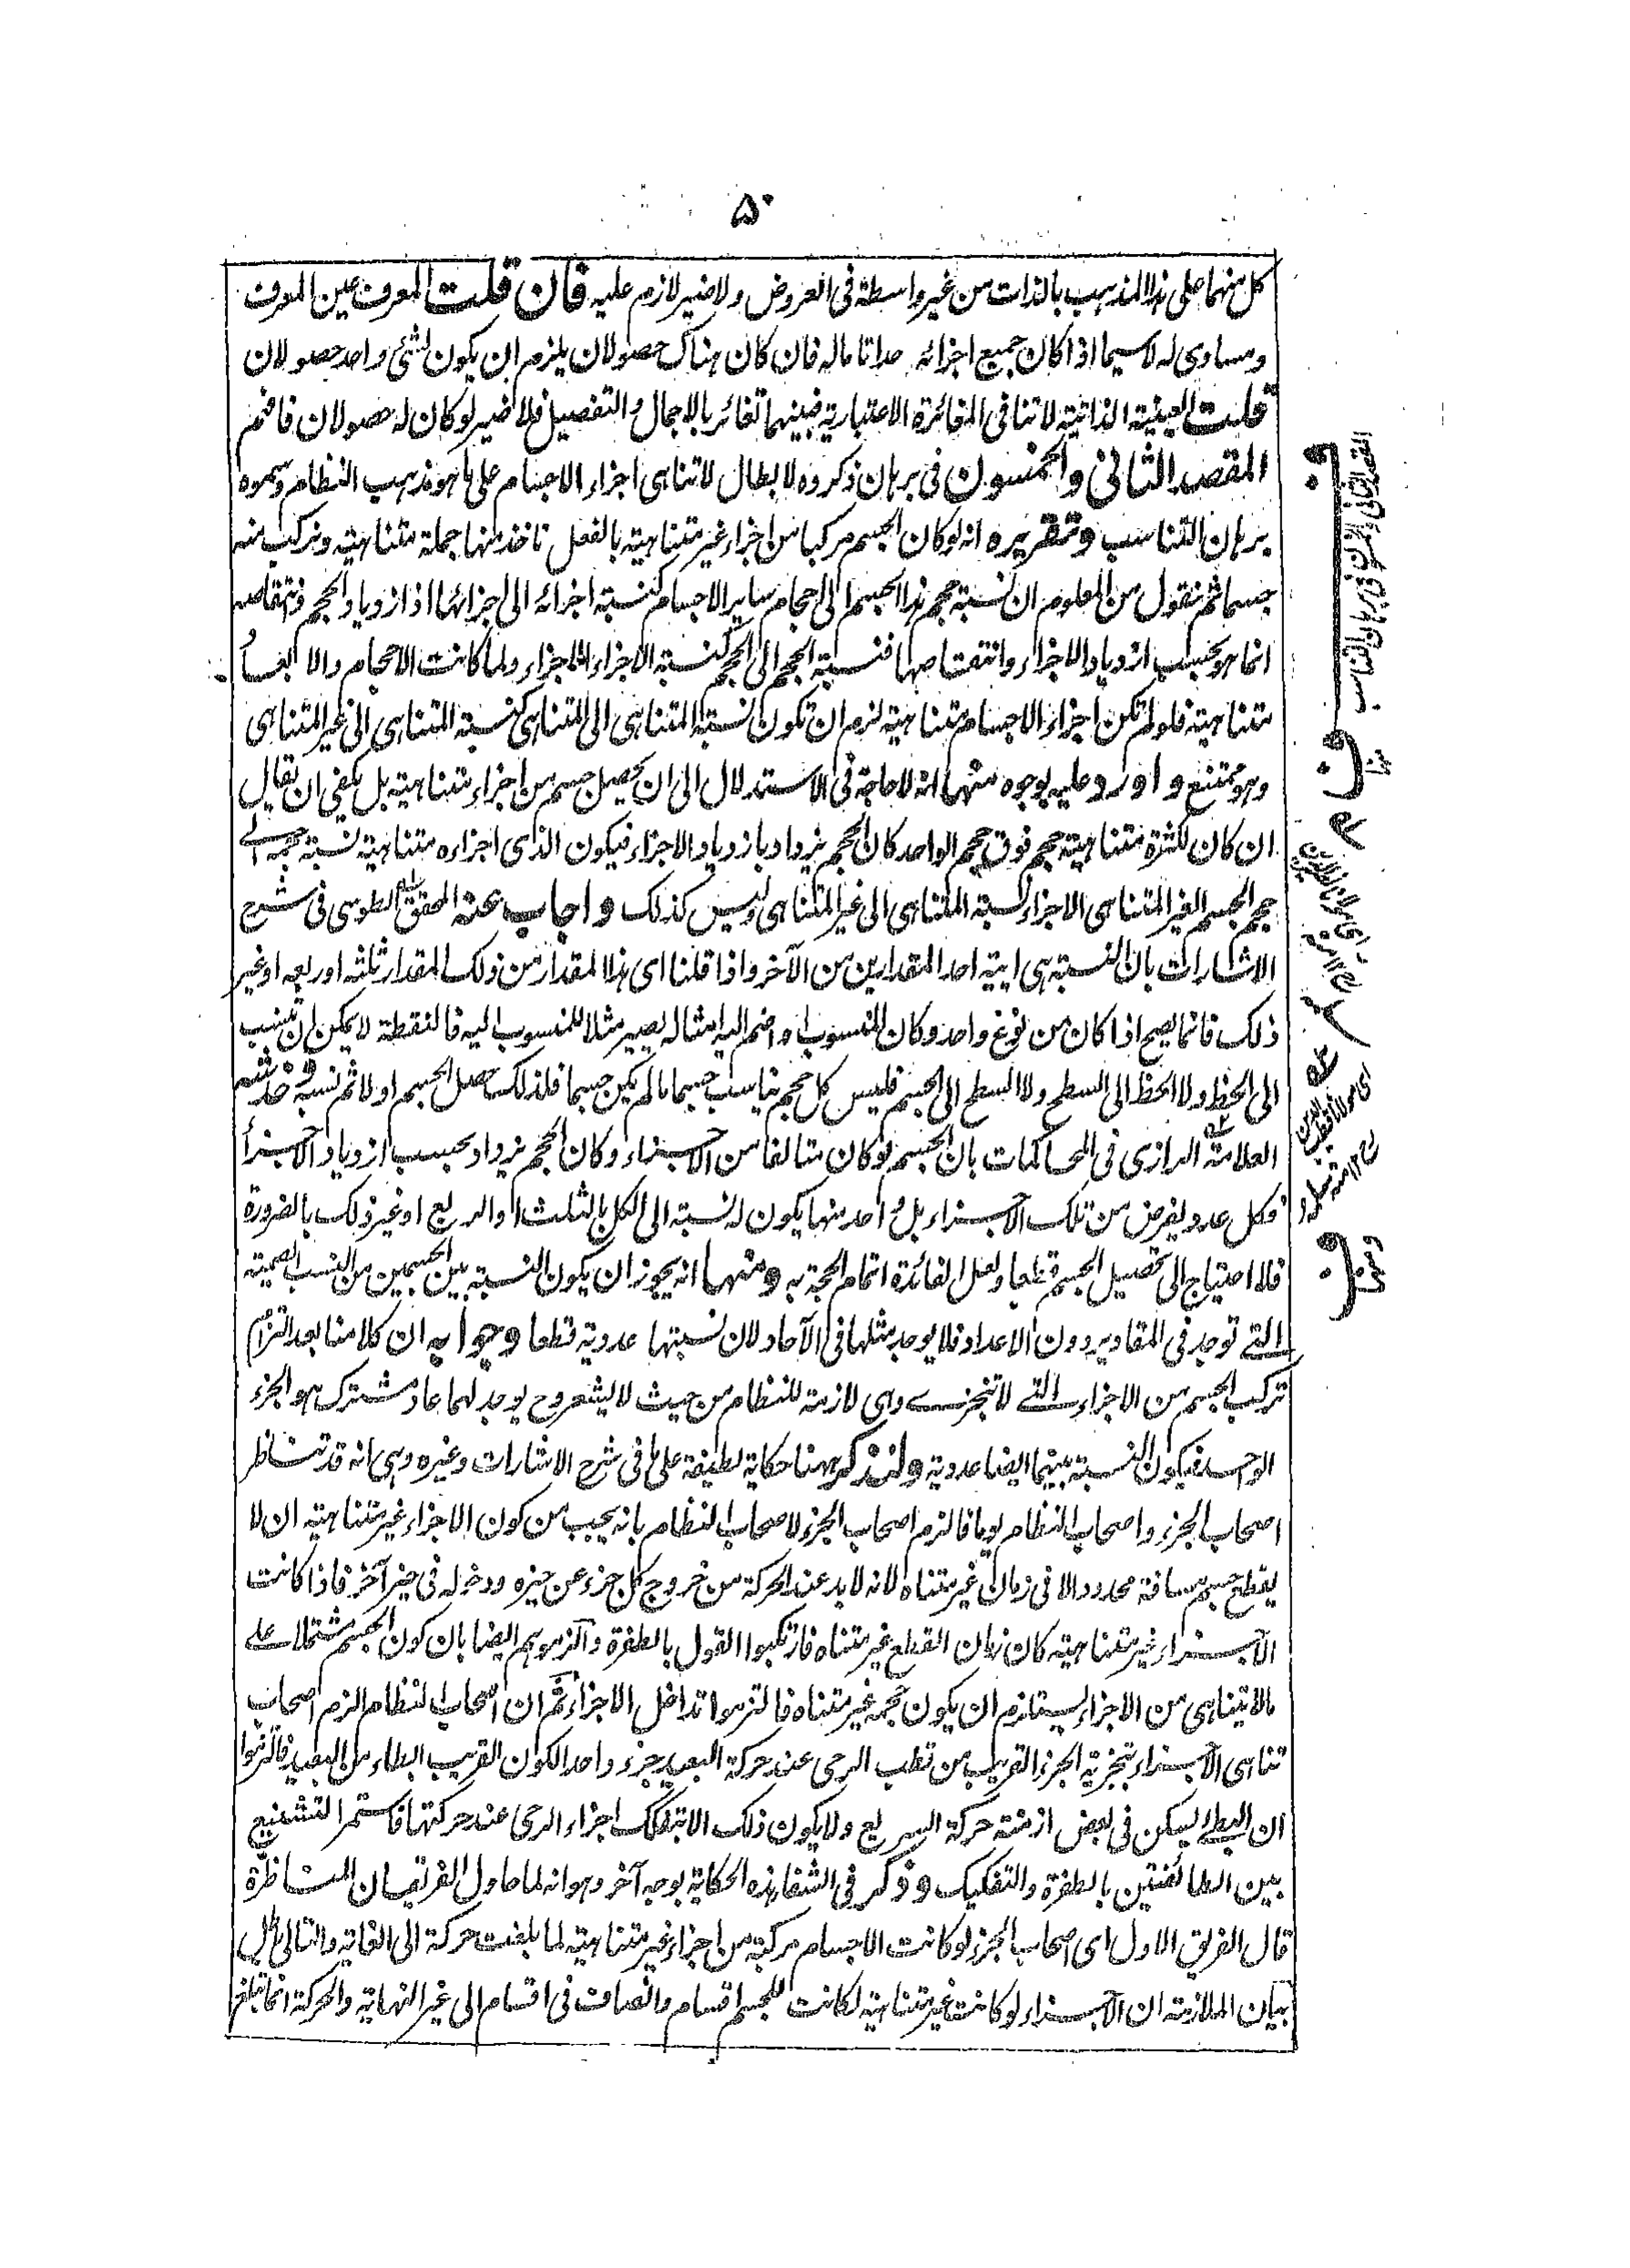 ۵۰
كل منهما على هذا المذهب بالذات من غير واسطة فى العروض ولا ضير لازم عليه فان قلت المعرف عين المعرف
ومساوى له لاسيما اذا كان جميع اجزائه حدا تاما له فان كان هناك حصولان يلزم ان يكون لشئ واحد حصولان
قلت العينية الذاتية لا تنافى المغائرة الاعتبارية فبينهما تغائر بالاجمال والتفصيل فلا ضير لو كان له حصولان فافهم
المقصد الثانى والخمسون فى برهان ذكروه لابطال لاتناهى اجزاء الاجسام على ما هو مذهب النظام وسموه
برهان التناسب وتقريره انه لو كان الجسم مركبا من اجزاء غير متناهية بالفعل ناخذ منها جملة متناهية ونركب منه
جسما ثم نقول من المعلوم ان نسبة حجم هذا الجسم الى احجام ساير الاجسام كنسبة اجزائه الى اجزائها اذ ازدياد الحجم وانتقاصه
انما هو بحسب ازدياد الاجزاء وانتقاصها فنسبة الحجم الى الحجم كنسبة الاجزاء الى الاجزاء ولما كانت الاحجام والابعاد
متناهية فلو لم تكن اجزاء الاجسام متناهية لزم ان تكون نسبة المتناهى الى المتناهى كنسبة المتناهى الى غير المتناهى
وهو ممتنع واورد عليه بوجوه منها انه لا حاجة فى الاستدلال الى ان يحصل جسم من اجزاء متناهية بل يكفى ان يقال
ان كان لكثرة متناهية حجم فوق حجم الواحد كان الحجم يزداد بازدياد الاجزاء فيكون الذى اجزاءه متناهية نسبة حجمه الى
حجم الجسم الغير المتناهى الاجزاء كنسبة المتناهى الى غير المتناهى وليس كذلك واجاب عنه المحقق الطوسى فى شرح
الاشارات بان النسبة هى ايية احد المقدارين من الآخر واذا قلنا اى هذا المقدار من ذلك المقدار ثلثه اوربعه اوغير
ذلك فانما يصح اذا كان من نوع واحد وكان المنسوب اذا ضم اليه امثاله يصير مثلا للمنسوب اليه فالنقطة لا يمكن ان تنسب
الى الخط ولا الخط الى السطح ولا السطح الى الجسم فليس كل حجم يناسب جسما ما لم يكن جسما فلذلك حصل الجسم اولا ثم نسبه وخدشه
العلامة الرازى فى المحاكمات بان الجسم لو كان متالفا من الاجزاء وكان الحجم يزداد بحسب ازدياد الاجزاء
فكل عدد يفرض من تلك الاجزاء بل واحد منها يكون له نسبة الى الكل بالثلث او الربع او غير ذلك بالضرورة
فلا احتياج الى تحصيل الجسم قطعا ولعل الفائدة اتمام الحجة به ومنها انه يجوز ان يكون النسبة بين الجسمين من النسب الصمية
التى توجد فى المقادير دون الاعداد فلا يوجد مثلها فى الآحاد لان نسبتها عددية قطعا وجوابه ان كلامنا بعد التزام
تركب الجسم من الاجزاء التى لا تتجزى وهى لازمة للنظام من حيث لا يشعر وح يوجد لهما عاد مشترك هو الجزء
الواحد فيكون النسبة بينهما ايضا عددية ولنذكر ههنا حكاية لطيفة على ما فى شرح الاشارات وغيره وهى انه قد تناظر
اصحاب الجزء واصحاب النظام يوما فالزم اصحاب الجزء لاصحاب النظام بانه يجب من كون الاجزاء غير متناهية ان لا
يقطع جسم مسافة محدودة الا فى زمان غير متناه لانه لابد عند الحركة من خروج كل جزء عن حيزه ودخوله فى حيز آخر فاذا كانت
الاجزاء غير متناهية كان زمان القطع غير متناه فارتكبوا القول بالطفرة والزموهم ايضا بان كون الجسم مشتملا على
ما لا يتناهى من الاجزاء يستلزم ان يكون حجمه غير متناه فالتزموا تداخل الاجزاء ثم ان اصحاب النظام الزم اصحاب
تناهى الاجزاء بتجزية الجزء القريب من قطب الرحى عند حركة البعيد جزء واحدا لكون القريب ابطاء من البعيد فالتزموا
ان البطى يسكن فى بعض ازمنة حركة السريع ولا يكون ذلك الا بتفكك اجزاء الرحى عند حركتها فاستمر التشنيع
بين الطائفتين بالطفرة والتفكيك وذكر فى الشفا هذه الحكاية بوجه آخر وهو انه لما حاول الفريقان المناظرة
قال الفريق الاول اى اصحاب الجزء لو كانت الاجسام مركبة من اجزاء غير متناهية لما بلغت حركة الى الغاية والتالى باطل
بيان الملازمة ان الاجزاء لو كانت غير متناهية لكانت للجسم اقسام وانصاف فى اقسام الى غير النهاية والحركة انما تبلغ
المقصد الثانى والخمسون فى برهان التناسب